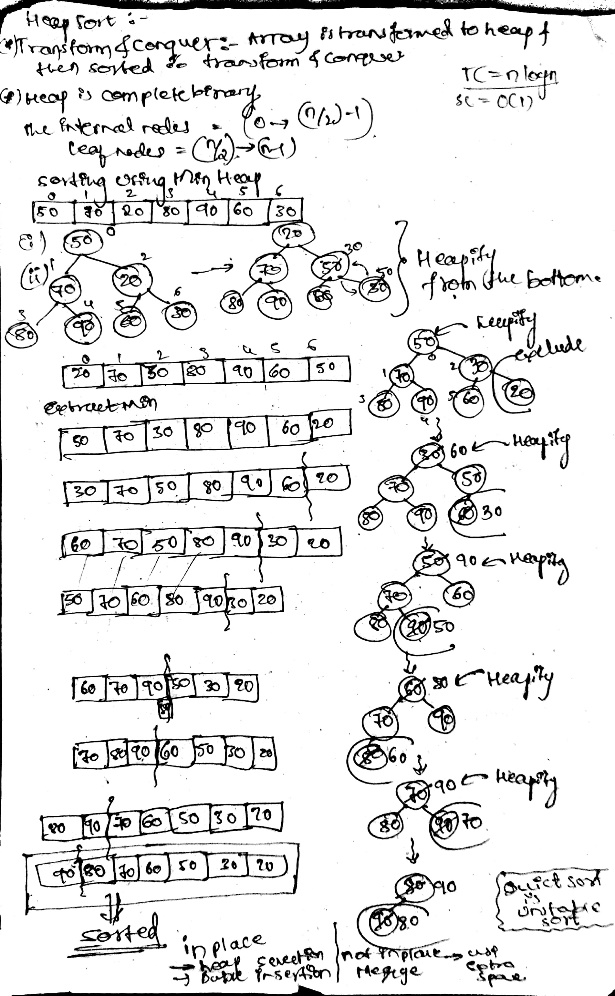 Heap sort :-
(*) Transform & Conquer :- Array is transformed to heap &
then sorted so transform & conquer
TC = n log n
SC = O(1)
(*) Heap is complete binary
the internal nodes = (0 → (n/2)-1)
leaf nodes = (n/2) → (n-1)
sorting using Min Heap
0 1 2 3 4 5 6
50 70 20 80 90 60 30
(i) 50 0
(ii) 1 70 20 2
3 80 4 90 5 60 6 30
→
20
70 50 30
80 90 60 30 50
Heapify
from the bottom.
0 1 2 3 4 5 6
20 70 30 80 90 60 50
Extract Min
50 70 30 80 90 60 20
30 70 50 80 90 60 20
60 70 50 80 90 30 20
50 70 60 80 90 30 20
60 70 90 50 30 20
70 80 90 60 50 30 20
80 90 70 60 50 30 20
90 80 70 60 50 30 20
sorted
50 0 ← Heapify
1 70 2 30 exclude
3 80 90 4 5 60 20
30 60 ← Heapify
70 50
80 90 60 30
50 90 ← Heapify
70 60
80 90 50
60 80 ← Heapify
70 90
80 60
70 90 ← Heapify
80 90 70
80 90
90 80
Quick sort
is
unstable
sort
in place
→ heap selection
→ Bubble insertion
not in place → use
Merge extra
space